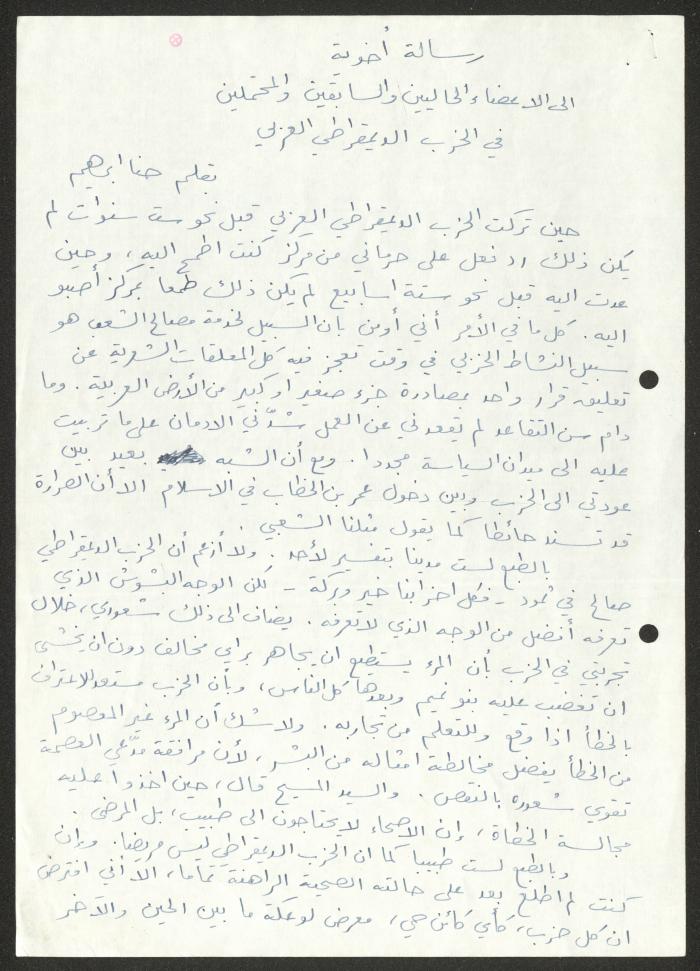 رسالة أخوية
الى الاعضاء الحاليين والسابقين والمحتملين
في الحزب الديمقراطي العربي
بقلم حنا ابرهيم
حين تركت الحزب الديمقراطي العربي قبل نحو ست سنوات لم
يكن ذلك رد فعل على حرماني من مركز كنت اطمح اليه، وحين
عدت اليه قبل نحو ستة اسابيع لم يكن ذلك طمعا بمركز أصبو
اليه. كل ما في الأمر أني أومن بان السبيل لخدمة مصالح الشعب هو
سبيل النشاط الحزبي في وقت تعجز فيه كل المعلقات الشعرية عن
تعليق قرار واحد بمصادرة جزء صغير او كبير من الأرض العربية. وما
دام سن التقاعد لم يقعدني عن العمل شدّني الادمان على ما تربيت
عليه الى ميدان السياسة مجددا. ومع أن الشبه بعيد بين
عودتي الى الحزب وبين دخول عمر بن الخطاب في الاسلام الا أن الصرارة
قد تسند حائطا كما يقول مثلنا الشعبي.
بالطبع لست مدينا بتفسير لأحد. ولا أزعم أن الحزب الديمقراطي
صالح في ثمود - فكل احزابنا خير وبركة - لكن الوجه البشوش الذي
تعرفه أفضل من الوجه الذي لا تعرفه. يضاف الى ذلك شعوري، خلال
تجربتي في الحزب بأن المرء يستطيع ان يجاهر براي مخالف دون ان يخشى
ان تغضب عليه بنو تميم وبعدها كل الناس، وبأن الحزب مستعد للاعتراف
بالخطأ اذا وقع وللتعلم من تجاربه. ولا شك أن المرء غير المعصوم
من الخطأ يفضل مخالطة امثاله من البشر، لأن مرافقة مدّعي العصمة
تقوي شعوره بالنقص. والسيد المسيح قال، حين اخذوا عليه
مجالسة الخطاة، إن الاصحاء لا يحتاجون الى طبيب، بل المرضى.
وبالطبع لست طبيبا كما ان الحزب الديمقراطي ليس مريضا. وإن
كنت لم اطلع بعد على حالته الصحية الراهنة تماما، الا أني افترض
ان كل حزب، كأي كائن حي، معرض لوعكة ما بين الحين والآخر